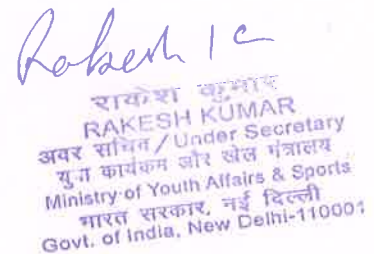 Rakesh K
राकेश कुमार
RAKESH KUMAR
अवर सचिव / Under Secretary
युवा कार्यक्रम और खेल मंत्रालय
Ministry of Youth Affairs & Sports
भारत सरकार, नई दिल्ली
Govt. of India, New Delhi-110001